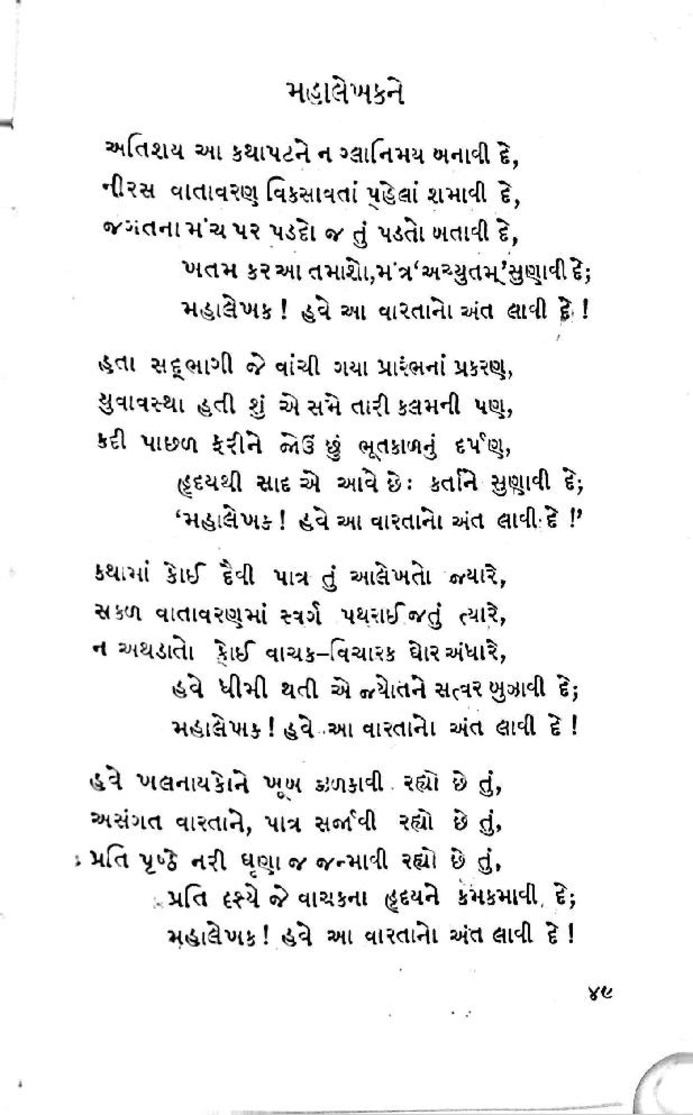 મહાલેખકને
અતિશય આ કથાપટને ન ગ્લાનિમય બનાવી દે,
નીરસ વાતાવરણ વિકસાવતાં પહેલાં શમાવી દે,
જગતના મંચ પર પડદો જ તું પડતો બતાવી દે,
ખતમ કર આ તમાશો, મંત્ર ‘અચ્યુતમ્’ સુણાવી દે;
મહાલેખક ! હવે આ વારતાનો અંત લાવી દે !
હતા સદ્દભાગી જે વાંચી ગયા પ્રારંભનાં પ્રકરણ,
યુવાવસ્થા હતી શું એ સમે તારી કલમની પણ,
કદી પાછળ ફરીને જોઉં છું ભૂતકાળનું દર્પણ,
હૃદયથી સાદ એ આવે છેઃ કર્તાને સુણાવી દે;
‘મહાલેખક ! હવે આ વારતાનો અંત લાવી દે !’
કથામાં કોઈ દૈવી પાત્ર તું આલેખતો જ્યારે,
સકળ વાતાવરણમાં સ્વર્ગ પથરાઈ જતું ત્યારે,
ન અથડાતો કોઈ વાચક–વિચારક ઘોર અંધારે,
હવે ધીમી થતી એ જ્યોતને સત્વર બુઝાવી દે;
મહાલેખક ! હવે આ વારતાનો અંત લાવી દે !
હવે ખલનાયકોને ખૂબ ઝળકાવી રહ્યો છે તું,
અસંગત વારતાને, પાત્ર સર્જાવી રહ્યો છે તું,
પ્રતિ પૃષ્ઠે નરી ઘૃણા જ જન્માવી રહ્યો છે તું,
પ્રતિ દૃશ્યે જે વાચકના હૃદયને કમકમાવી દે;
મહાલેખક ! હવે આ વારતાનો અંત લાવી દે !
૪૯